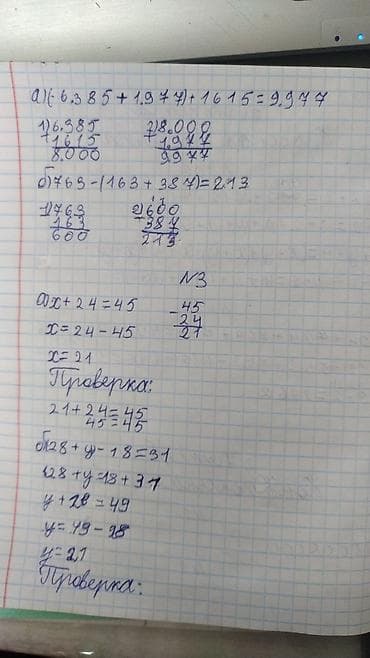 а)(6.385+1.977)+1615=9.977
1) 6.385 2) 8.000
+ 1615 + 1.977
8.000 9977
б)763-(163+387)=213
1) 763 2) 600
- 163 - 387
600 213
№3
а)x+24=45 - 45
x=24-45 24
x=21 21
Проверка:
21+24=45
45=45
б)(28+y)-18=31
28+y=18+31
y+28=49
y=49-28
y=21
Проверка: